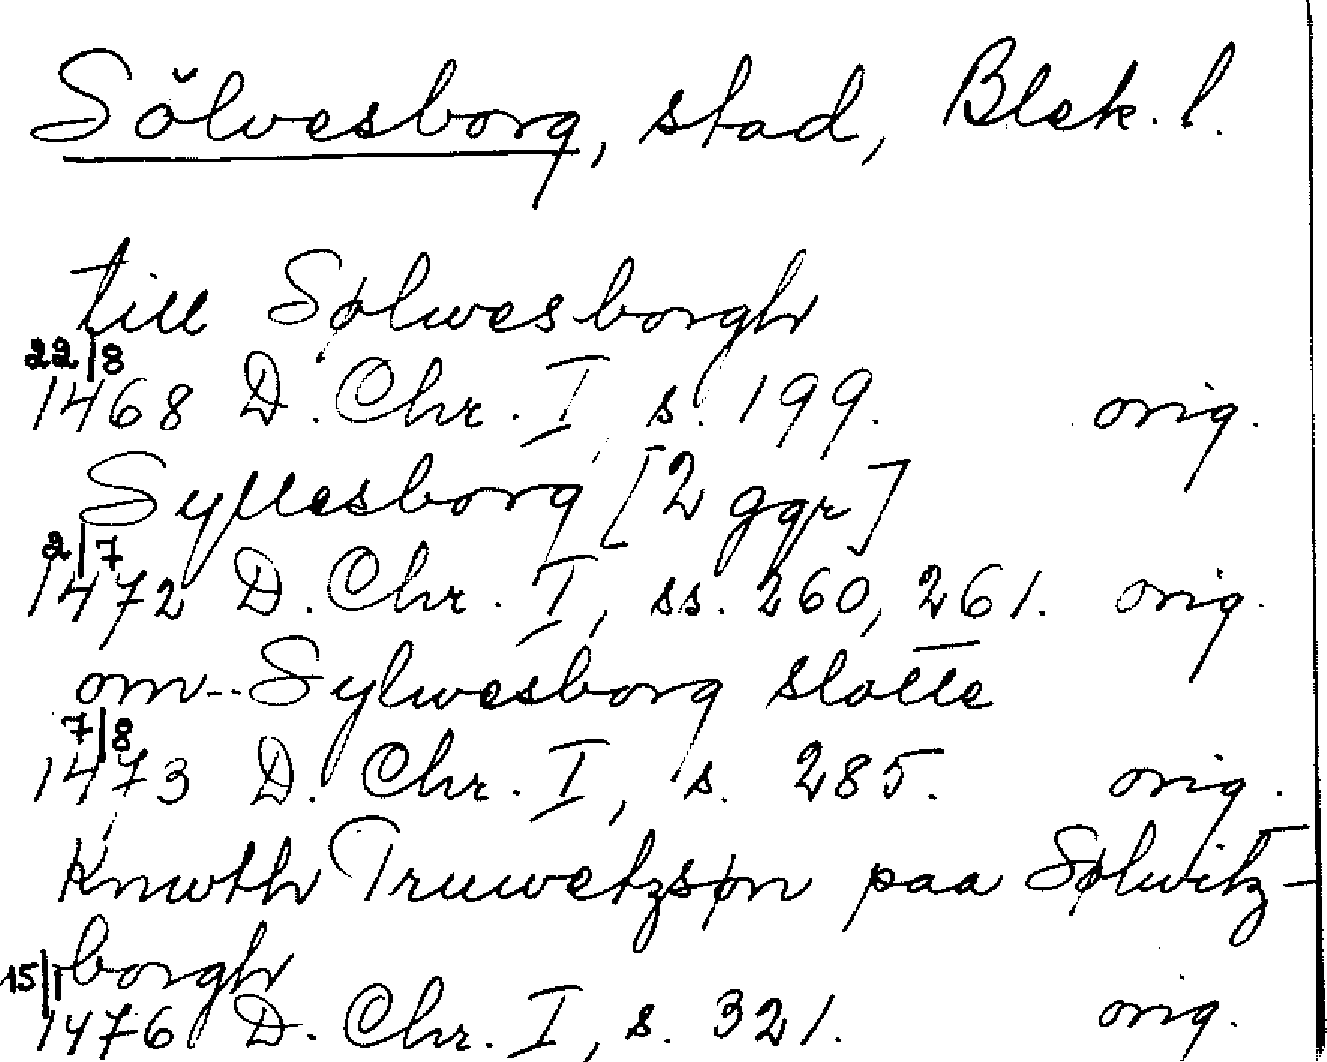 Sölvesborg, stad, Blek. l.
till Sølwesborgh
22/8
1468 D. Chr. I, s. 199. orig.
Syllesborg [2 ggr]
2/7
1472 D. Chr. I, ss. 260, 261. orig.
om--Sylwesborg slotte
7/8
1473 D. Chr. I, s. 285. orig.
Knwth Truwetzsøn paa Sølwitz-
borgh
15/1
1476 D. Chr. I, s. 321. orig.